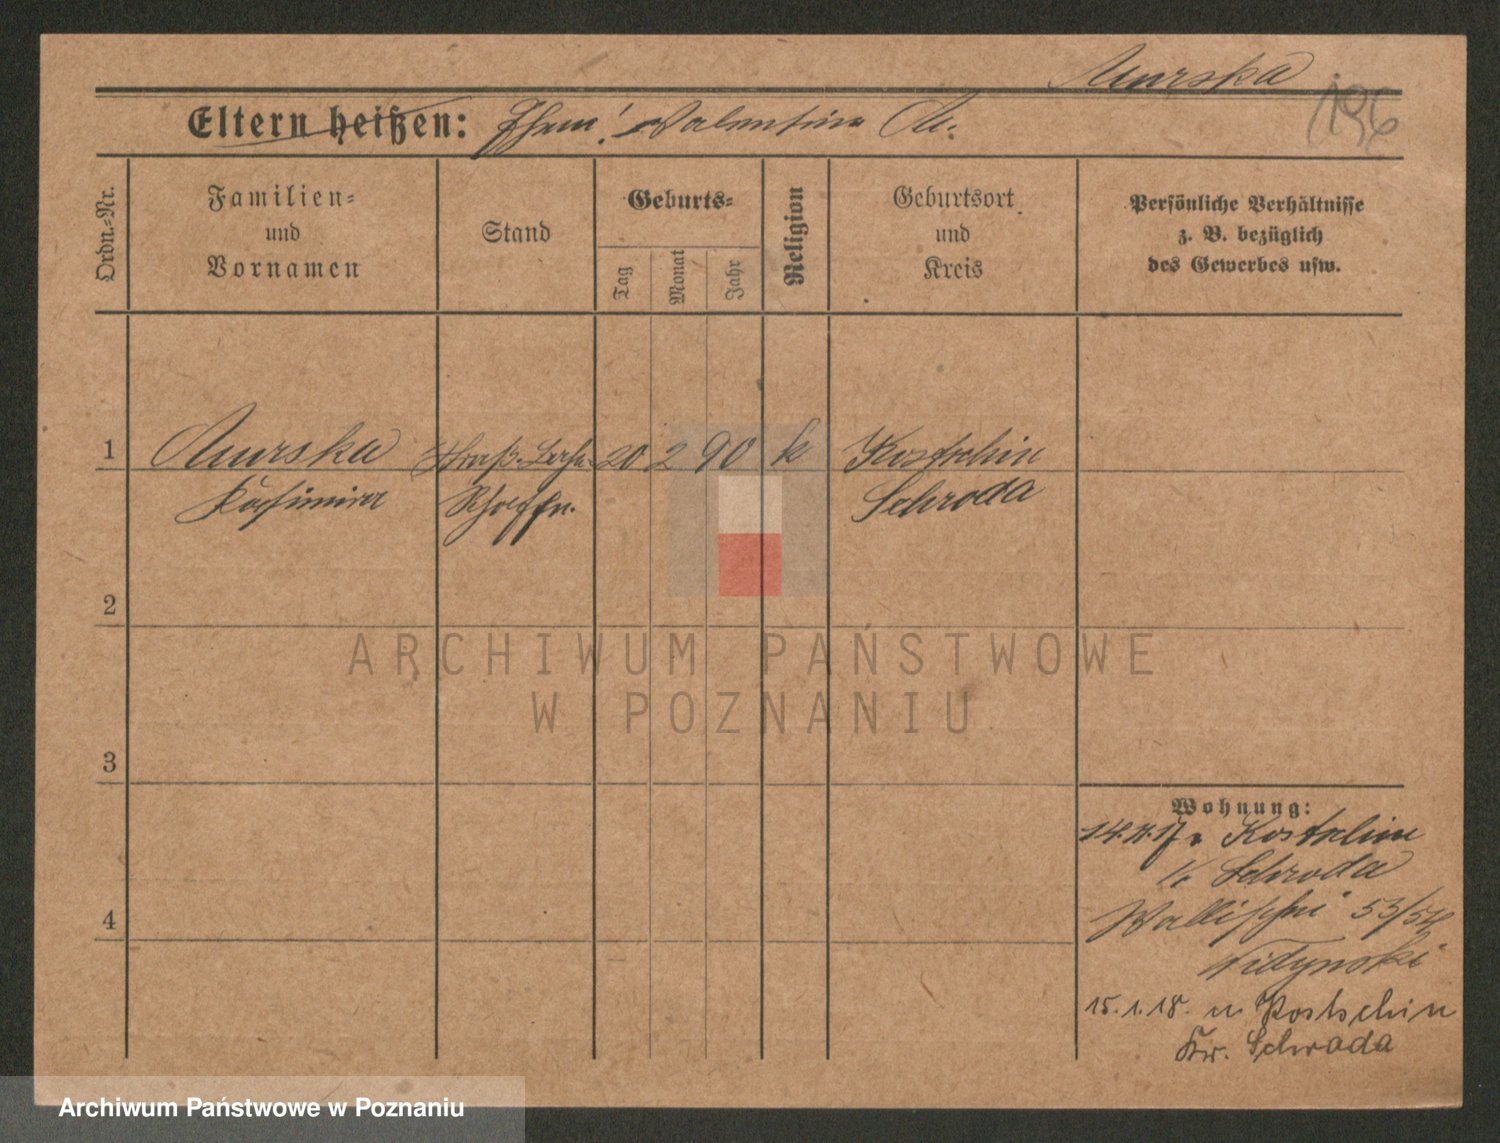 Murska
196
Eltern heißen: Ehem: Valentin M.
Ordn.-Nr.
Familien-
und
Vornamen
Stand
Geburts-
Tag
Monat
Jahr
Religion
Geburtsort
und
Kreis
Persönliche Verhältnisse
z. B. bezüglich
des Gewerbes usw.
1
Murska
Kasimira
Straß. Bahn
Schaffn.
20
2
90
k
Kostschin
Schroda
2
3
4
Wohnung:
14.11.17 v Kostschin
Kr Schroda
Wallischei 53/54
15.1.18. n Kostschin
Kr. Schroda
ARCHIWUM PAŃSTWOWE
W POZNANIU
Archiwum Państwowe w Poznaniu